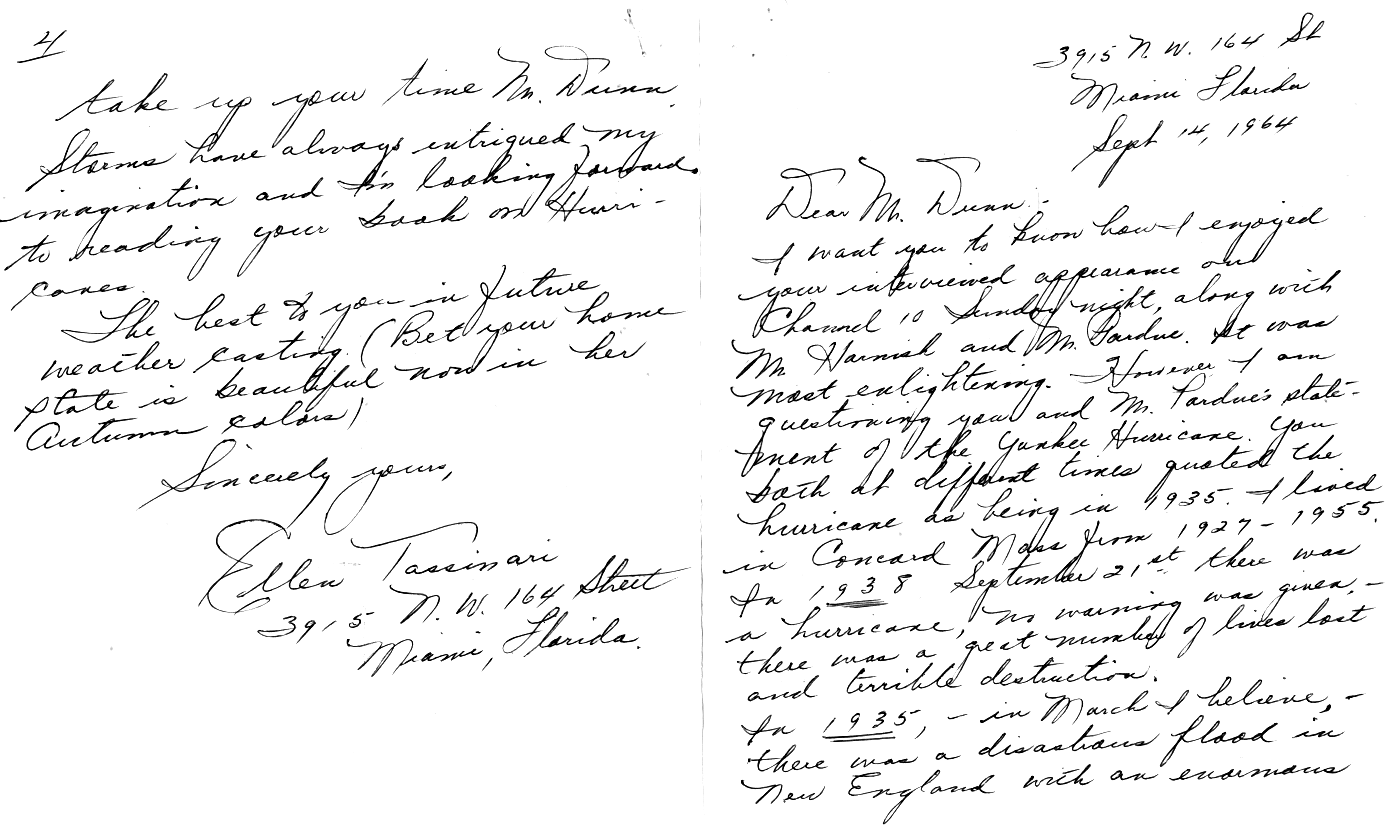 4
take up your time Mr. Dunn.
Storms have always intrigued my
imagination and I'm looking forward
to reading your book on Hurri-
canes.
The best to you in future
weather casting. (Bet your home
state is beautiful now in her
Autumn colors)
Sincerely yours,
Ellen Tassinari
3915 N. W. 164 Street
Miami, Florida.
3915 N. W. 164 St
Miami Florida
Sept 14, 1964
Dear Mr. Dunn -
I want you to know how I enjoyed
your interviewed appearance on
Channel 10 Sunday night, along with
Mr. Harnish and Mr. Pardue. It was
most enlightening. However I am
questioning you and Mr. Pardue's state-
ment of the Yankee Hurricane. You
both at different times quoted the
hurricane as being in 1935. I lived
in Concord Mass from 1927 - 1955.
In 1938 September 21,st there was
a hurricane, no warning was given, -
there was a great number of lives lost
and terrible destruction.
In 1935, - in March I believe, -
there was a disastrous flood in
New England with an enormous